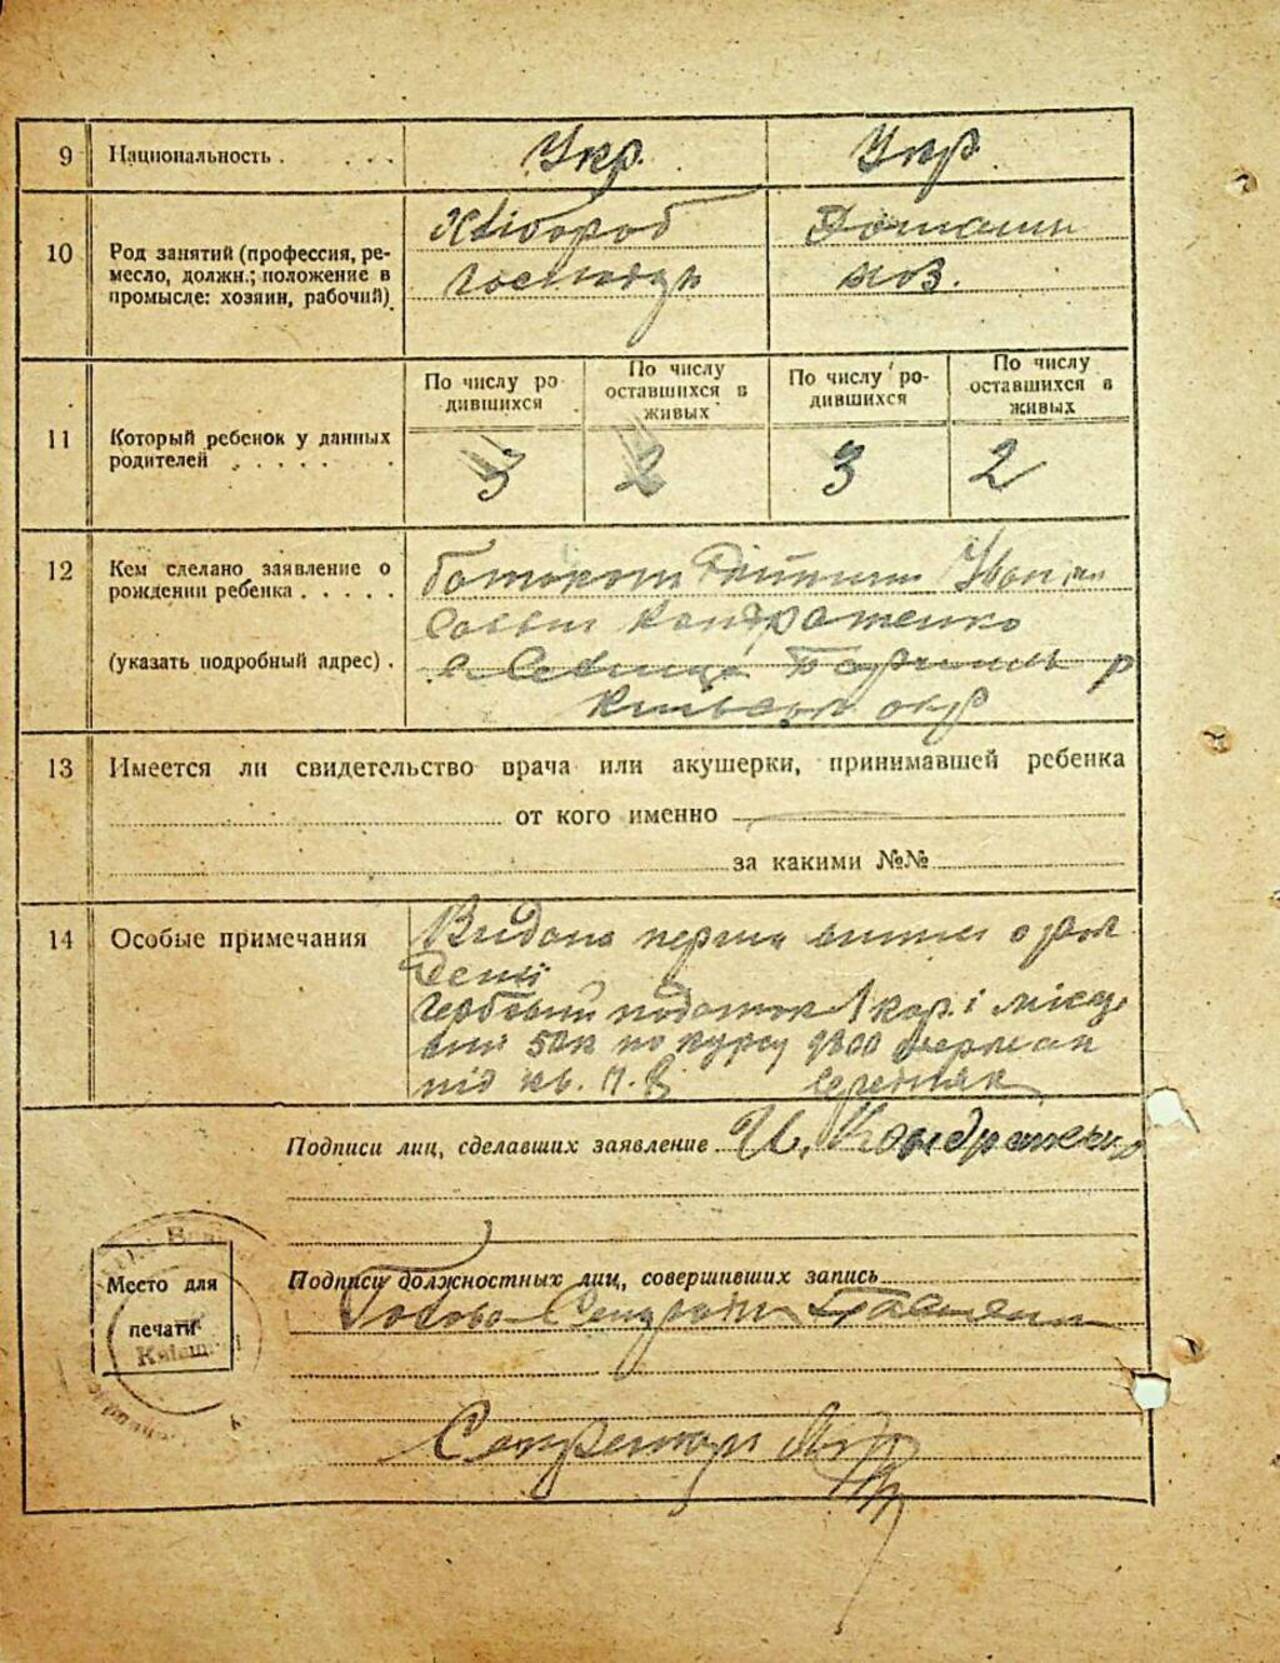 9 Национальность . . . . Укр. Укр
10 Род занятий (профессия, ре-
месло, должн.; положение в
промысле: хозяин, рабочий)
Хлібороб
господар
Домашн
хоз.
11 Который ребенок у данных
родителей . . . . . .
По числу ро-
дившихся
По числу
оставшихся в
живых
По числу ро-
дившихся
По числу
оставшихся в
живых
3 2 3 2
12 Кем сделано заявление о
рождении ребенка . . . . .
(указать подробный адрес) .
батьком дитини Іван
Кондратенко
р
окр
13 Имеется ли свидетельство врача или акушерки, принимавшей ребенка
от кого именно
за какими №№
14 Особые примечания
Видана перша о рож
дении
Гербовий податок 1 кар. і місце
вий 50к по курсу
під кв. Середняк
Подписи лиц, сделавших заявление И. Кондратенко
Место для
печати
Подписи должностных лиц, совершивших запись
Голова
Секретарь